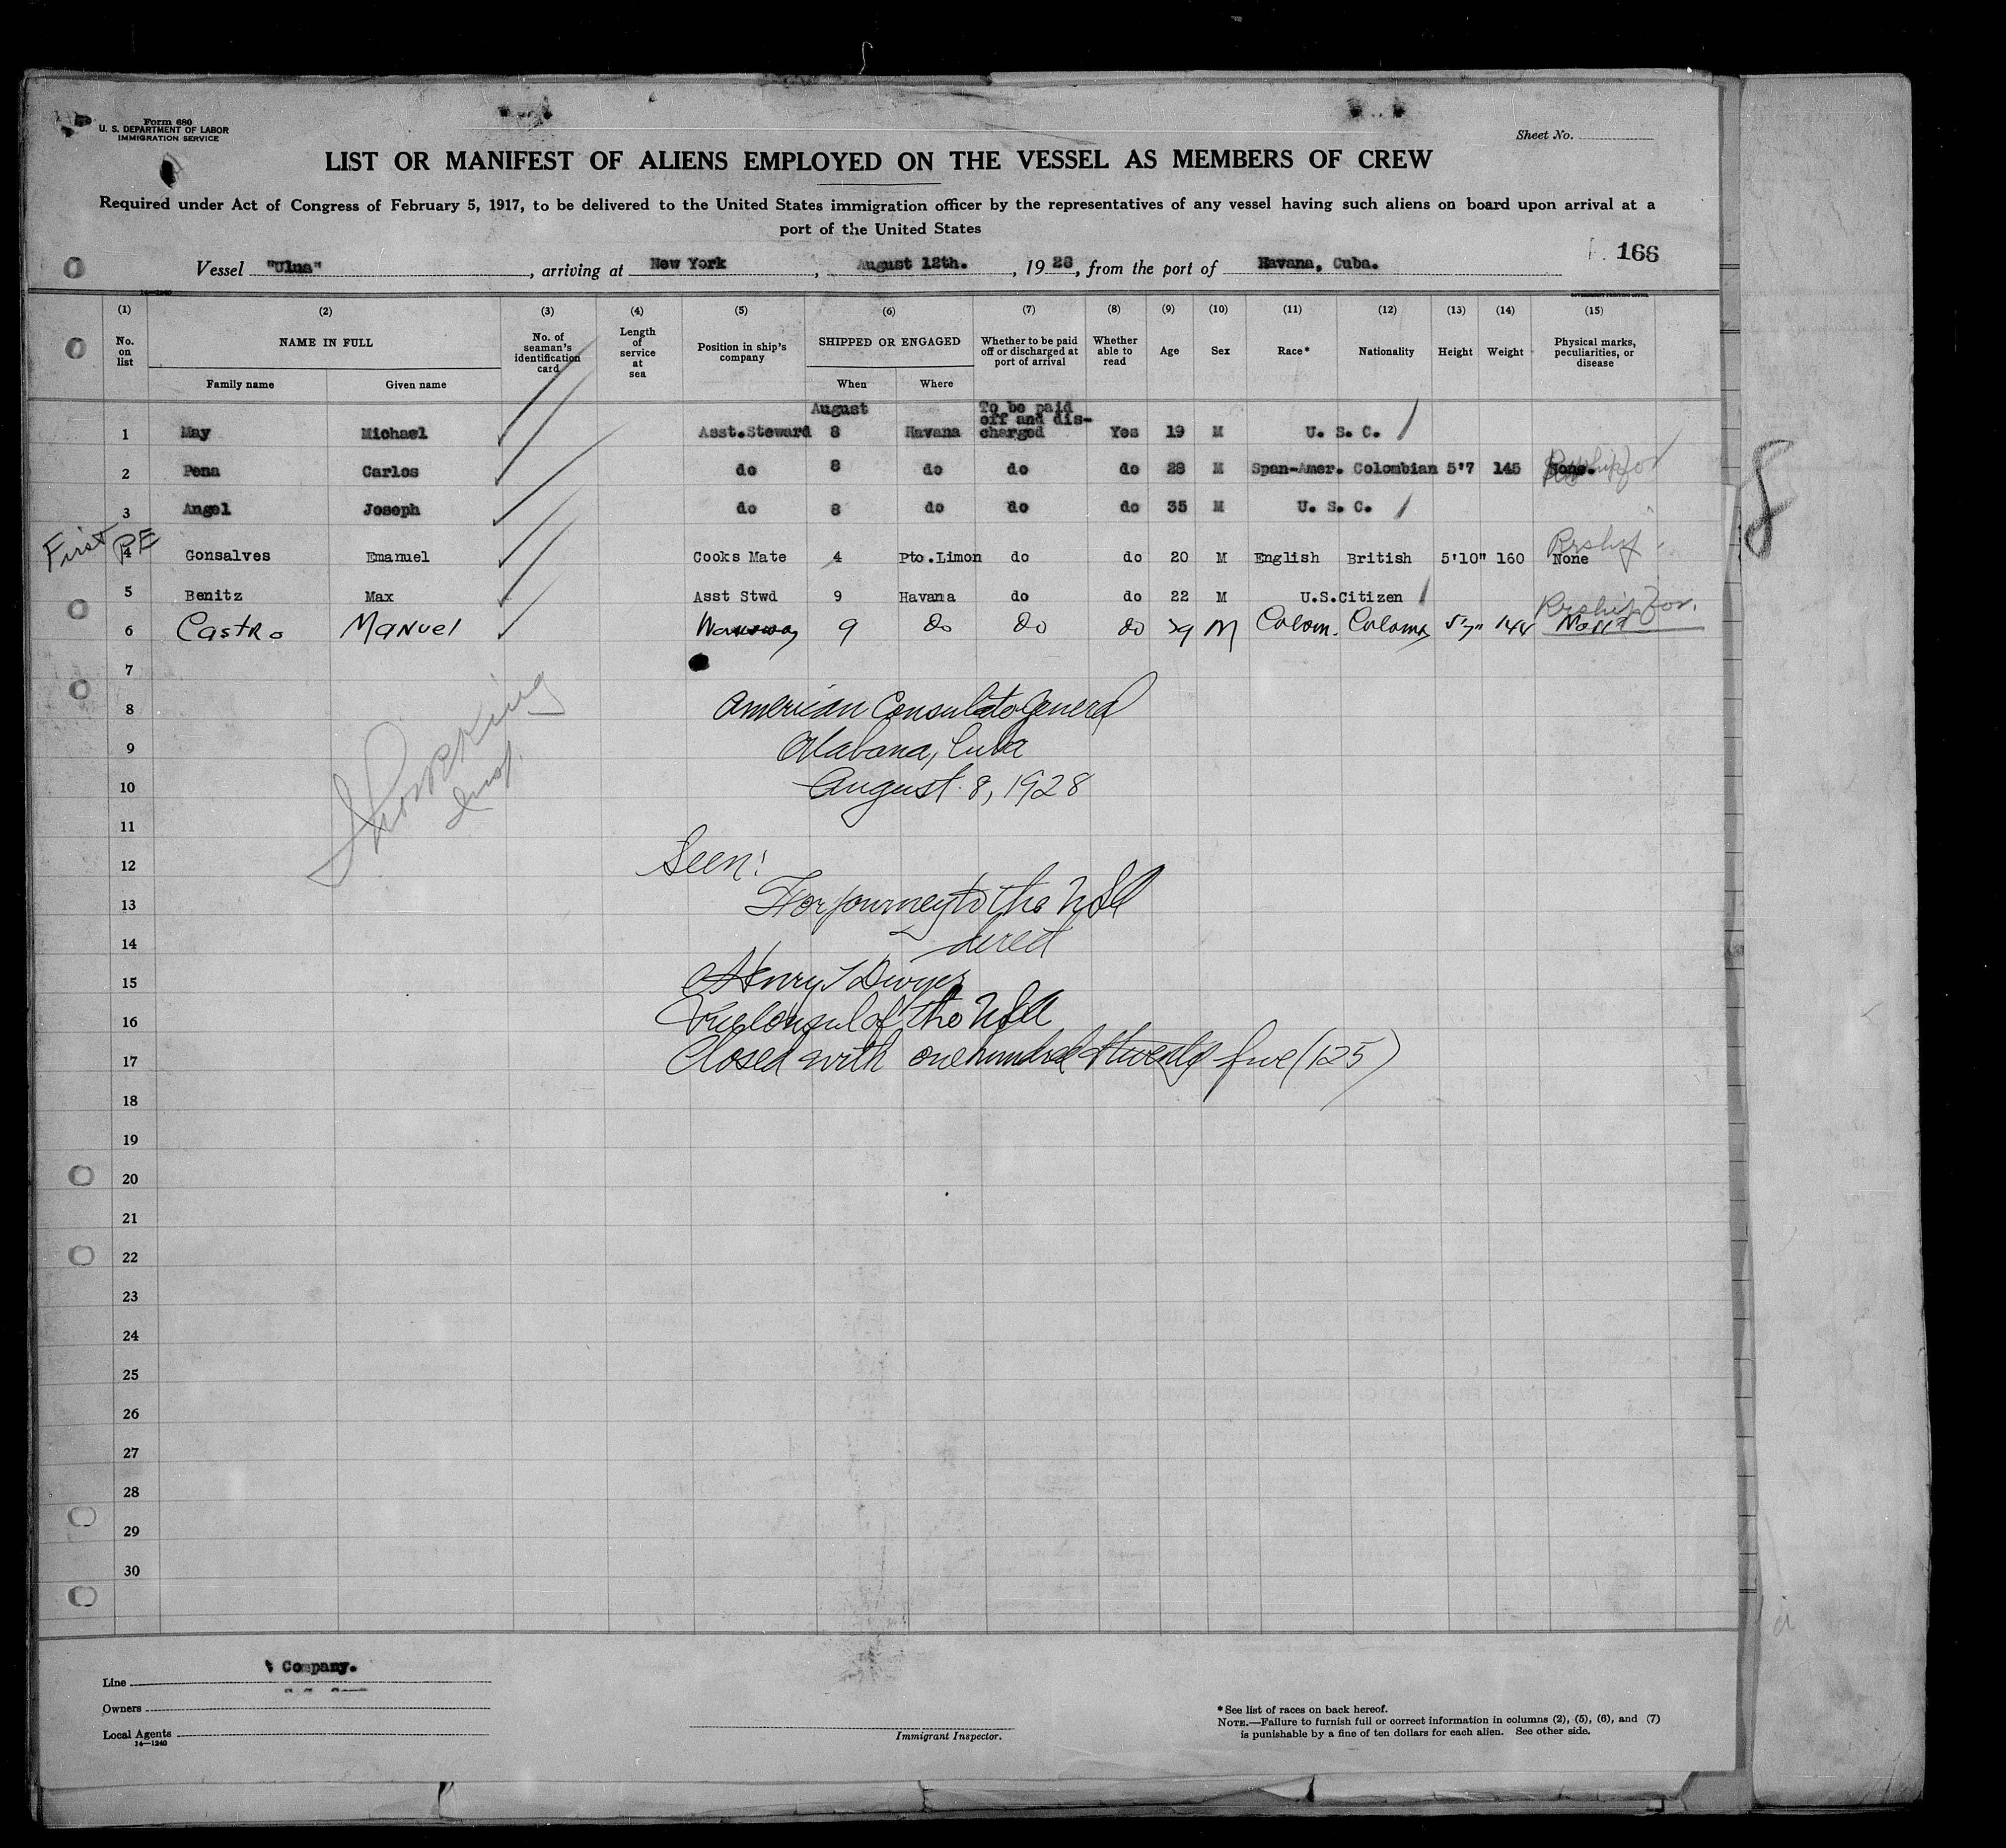 Form 680
U. S. DEPARTMENT OF LABOR
IMMIGRATION SERVICE
Sheet No.
LIST OR MANIFEST OF ALIENS EMPLOYED ON THE VESSEL AS MEMBERS OF CREW
Required under Act of Congress of February 5, 1917, to be delivered to the United States immigration officer by the representatives of any vessel having such aliens on board upon arrival at a
port of the United States
166
Vessel "Ulua", arriving at New York, August 12th., 1928, from the port of Havana, Cuba.
(1) (2) (3) (4) (5) (6) (7) (8) (9) (10) (11) (12) (13) (14) (15)
No. on list NAME IN FULL No. of seaman's identification card Length of service at sea Position in ship's company SHIPPED OR ENGAGED Whether to be paid off or discharged at port of arrival Whether able to read Age Sex Race* Nationality Height Weight Physical marks, peculiarities, or disease
Family name Given name When Where
August To be paid off and dis-
1 May Michael Asst.Steward 8 Havana charged Yes 19 M U. S. C.
2 Pena Carlos do 8 do do do 28 M Span-Amer. Colombian 5'7 145 None.
3 Angel Joseph do 8 do do do 35 M U. S. C.
First PE 4 Gonsalves Emanuel Cooks Mate 4 Pto.Limon do do 20 M English British 5'10" 160 None
5 Benitz Max Asst Stwd 9 Havana do do 22 M U.S.Citizen
6 Castro Manuel 9 do do do 29 M Colom. 5'7" 144 None
7
8 American Consulate General
9 Habana, Cuba
10 August 8, 1928
11
12 Seen:
13 For journey to the USA
14 direct
15 Henry T Dwyer
16 Vice Consul of the USA
17 Closed with one hundred twenty five (125)
18
19
20
21
22
23
24
25
26
27
28
29
30
8
Company.
Line
Owners
Local Agents
14—1240
Immigrant Inspector.
*See list of races on back hereof.
NOTE.—Failure to furnish full or correct information in columns (2), (5), (6), and (7)
is punishable by a fine of ten dollars for each alien. See other side.